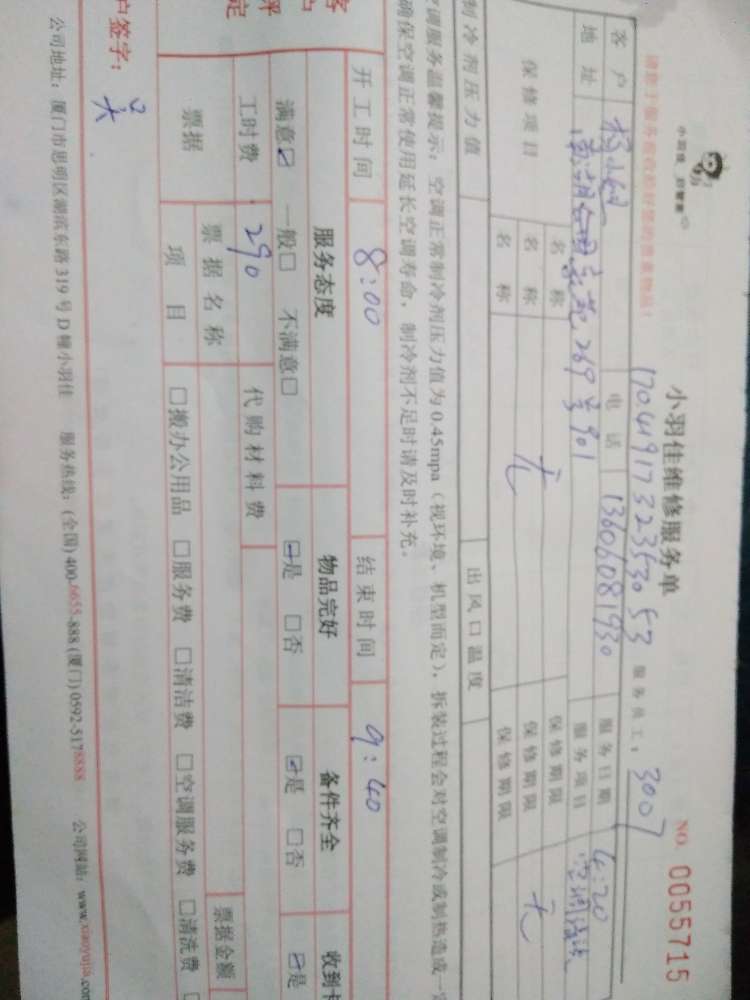 请您于服务前收拾好您的贵重物品!
小羽佳 好管家
小羽佳维修服务单
NO. 0055715
170.4191732353053 服务员工: 3007
客户 杨小姐 电话 13606081930 服务日期 4.20
地址 269号901 服务项目 空调清洗
保修项目 名称 无 保修期限 无
名称 保修期限
名称 保修期限
制冷剂压力值 出风口温度
空调服务温馨提示:空调正常制冷剂压力值为0.45mpa(视环境、机型而定),拆装过程会对空调制冷或制热造成一
确保空调正常使用延长空调寿命,制冷剂不足时请及时补充。
开工时间 8:00 结束时间 9:40
服务态度 物品完好 备件齐全 收到
满意☑ 一般□ 不满意□ ☑是 □否 ☑是 □否 ☑是
工时费 290 代购材料费
票据 票据名称 票据金额
项目 □搬办公用品 □服务费 □清洁费 □空调服务费 □清洗费 □
户签字:
公司地址:厦门市思明区湖滨东路319号D幢小羽佳 服务热线:(全国)400-6655-888 (厦门)0592-5178888 公司网站:www.xiaoyujia.com